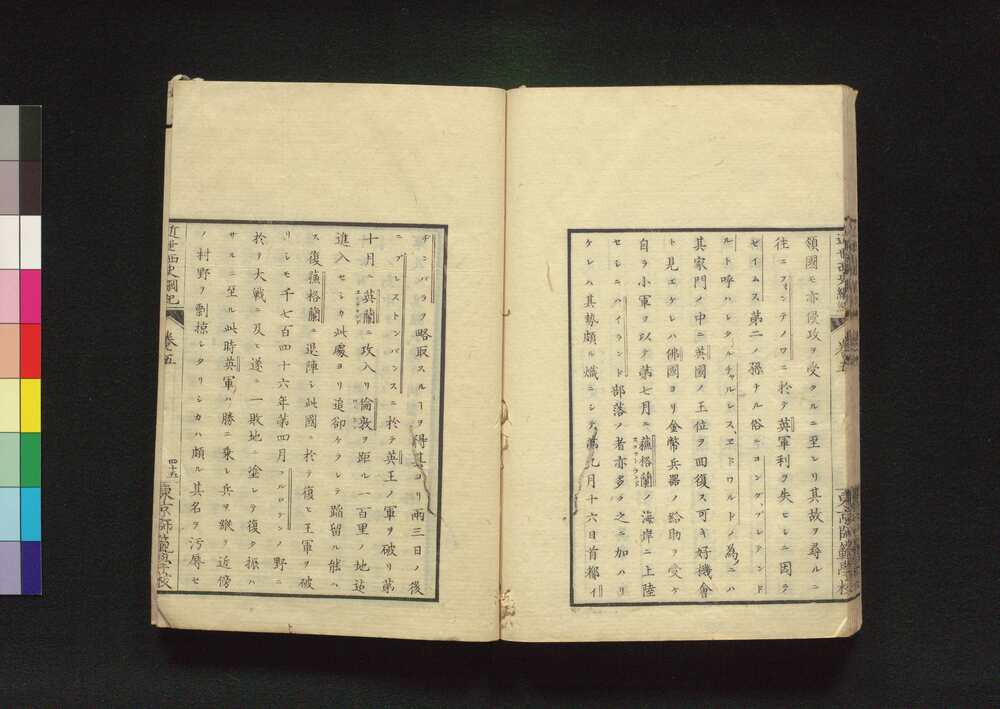 領國モ亦侵攻ヲ受クルニ至レリ其故ヲ尋ルニ
往ニフォンテノワニ於テ英軍利ヲ失ヒシニ因テ
ゼイムス第二ノ孫ナル俗ニヨングプレテンド
ルト呼ハレタルチャルレス、エドワルドノ為ニハ
其家門ノ中ニ英國ノ王位ヲ回復ス可キ好機會
ト見エケレハ佛國ヨリ金幣兵器ノ給助ヲ受ケ
自ラ小軍ヲ以テ第七月ニ蘓格蘭ノ海岸ニ上陸
セシニハイランド部落ノ者亦多ク之ニ加ハリ
ケレハ其勢頗ル熾ニシテ第九月十六日首都イ
ヂンバラヲ略取スルヿヲ得其ヨリ兩三日ノ後
ニプレストンパンスニ於テ英王ノ軍ヲ破リ第
十月ニ英蘭ニ攻入リ倫敦ヲ距ル一百里ノ地迠
進入セシカ此處ヨリ追却ケラレテ蹈留ル能ハ
ス復蘓格蘭ニ退陣シ此國ニ於テ復ヒ王軍ヲ破
リシモ千七百四十六年第四月コルロデンノ野ニ
於ヲ大戦ニ及ヒ遂ニ一敗地ニ塗レテ復タ振ハ
サルニ至ル此時英軍ハ勝ニ乗シ兵ヲ縱チ近傍
ノ村野ヲ剽掠シタリシカハ頗ル其名ヲ汚辱セ
近世西史綱紀
卷五
四十五
東京師範學校